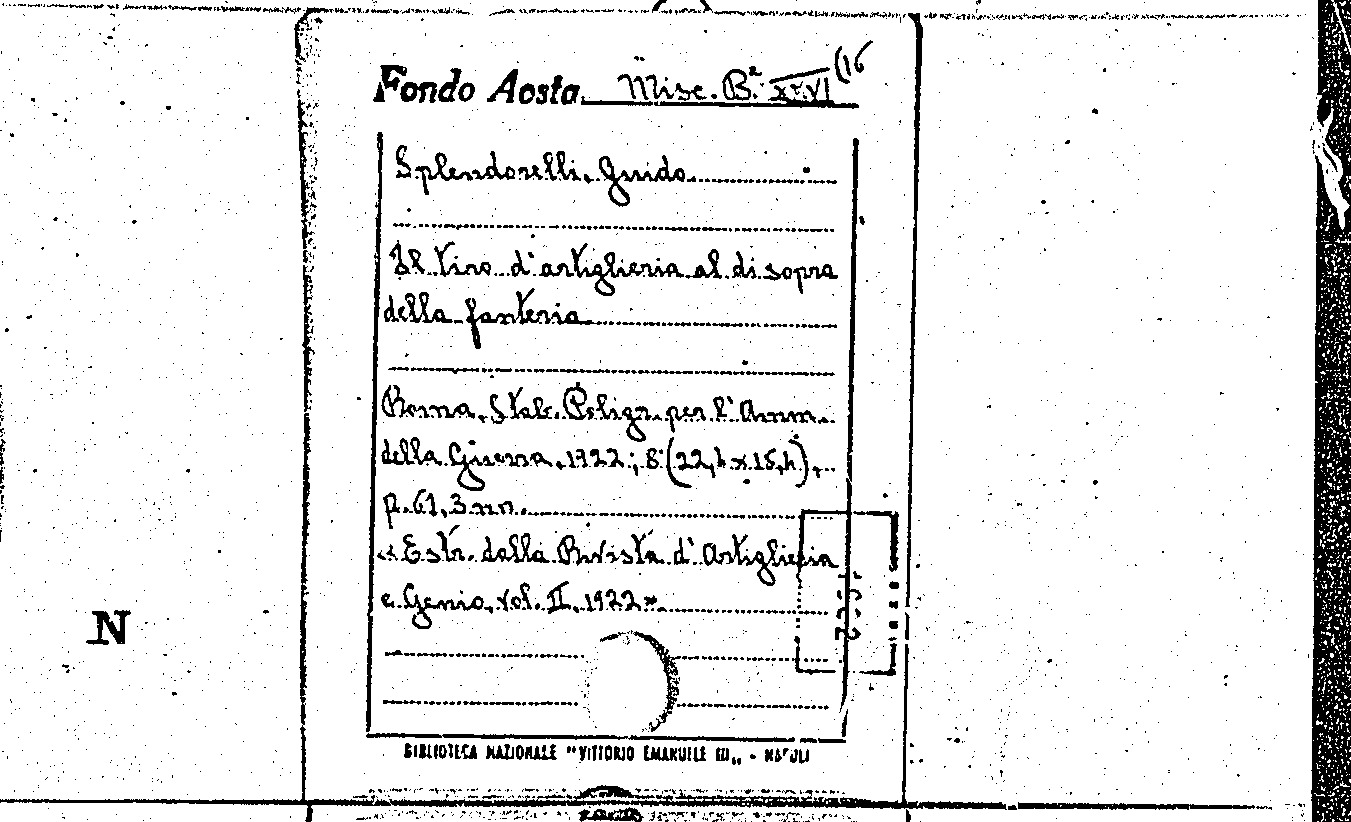 Fondo Aosta Misc. B.ª XXVI (16
Splendorelli, Guido
Il tiro d'artiglieria al di sopra
della fanteria
Roma, Stab. Poligr. per l'Amm.
della Guerra, 1922; 8° (22,4 x 15,4),
p. 61, 3 nn.
«Estr. dalla Rivista d'Artiglieria
e Genio, vol. II, 1922».
N
BIBLIOTECA NAZIONALE "VITTORIO EMANUELE III„ - NAPOLI